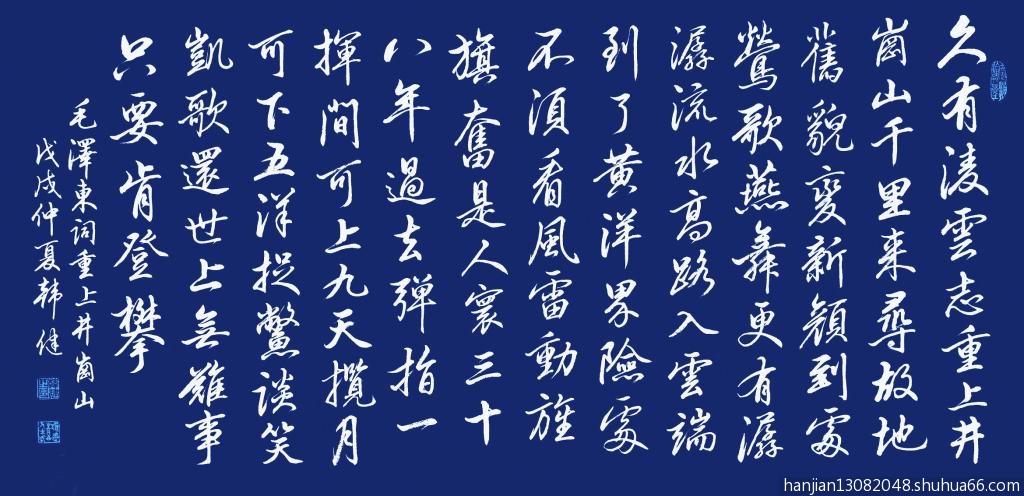 久有凌雲志重上井
崗山千里来尋故地
舊貌變新顔到處
鶯歌燕舞更有潺
潺流水高路入雲端
到了黄洋界險處
不須看風雷動旌
旗奮是人寰三十
八年過去彈指一
揮間可上九天攬月
可下五洋捉鱉談笑
凱歌還世上無難事
只要肯登攀
毛澤東詞重上井崗山
戊戌仲夏韩健
hanjian13082048.shuhua66.com